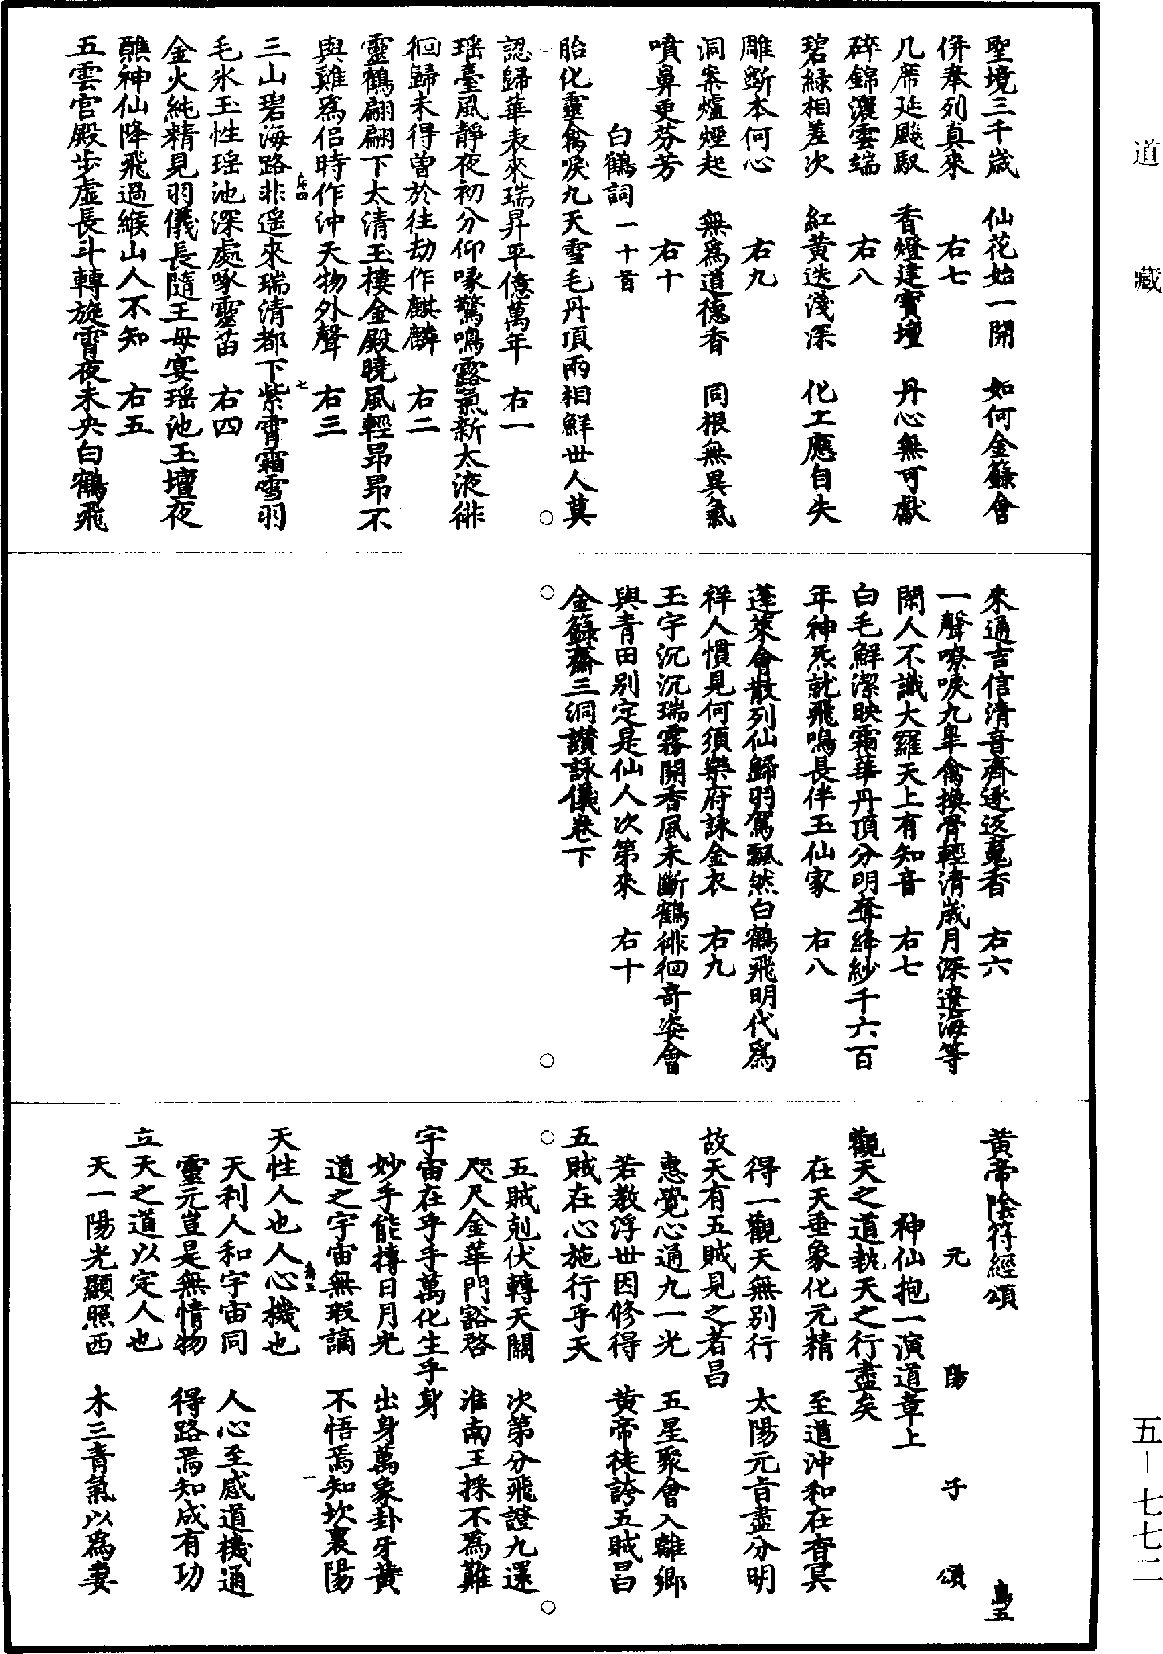 道藏
五—七七二
聖境三千歲　仙花始一開　如何金籙會
併奉列真來　右七
几席延飈馭　香燈建寶壇　丹心無可獻
碎錦灑雲端　右八
碧綠相差次　紅黃迭淺深　化工應自失
雕斲本何心　右九
洞案爐煙起　無爲道德香　同根無異氣
噴鼻更芬芳　右十
白鶴詞一十首
胎化靈禽唳九天雪毛丹頂兩相鮮世人莫
認歸華表來瑞昇平億萬年　右一
瑶臺風靜夜初分仰喙驚鳴露氣新太液徘
徊歸未得曾於往劫作麒麟　右二
靈鶴翩翩下太清玉樓金殿曉風輕昂昂不
與雞爲侣時作沖天物外聲　右三
三山碧海路非遥來瑞清都下紫霄霜雪羽
毛氷玉性瑶池深處啄靈苗　右四
金火純精見羽儀長隨王母宴瑶池玉壇夜
醮神仙降飛過緱山人不知　右五
五雲官殿步虚長斗轉旋霄夜未央白鶴飛
來通吉信清音齊逐返䰟香　右六
一聲嘹唳九皐禽換骨輕清歲月深遼海等
閑人不識大羅天上有知音　右七
白毛鮮潔映霜華丹頂分明奪絳紗千六百
年神炁就飛鳴長伴玉仙家　右八
蓬萊會散列仙歸羽駕飄然白鶴飛明代爲
祥人慣見何須樂府詠金衣　右九
玉宇沉沉瑞霧開香風未斷鶴徘徊奇姿會
與青田別定是仙人次第來　右十
金籙齋三洞讚詠儀卷下
黃帝陰符經頌
元陽子頌
神仙抱一演道章上
觀天之道執天之行盡矣
在天垂象化元精　至道沖和在杳冥
得一觀天無別行　太陽元旨盡分明
故天有五賊見之者昌
惠覺心通九一光　五星聚會入離鄉
若教浮世因修得　黃帝徒誇五賊昌
五賊在心施行乎天
五賊剋伏轉天關　次第分飛證九還
咫尺金華門豁啓　淮南王採不爲難
宇宙在乎手萬化生乎身
妙手能摶日月光　出身萬象卦牙黃
道之宇宙無瑕謫　不悟焉知坎裏陽
天性人也人心機也
天利人和宇宙同　人心至感道機通
靈元豈是無情物　得路焉知成有功
立天之道以定人也
天一陽光顯照西　木三青氣以爲妻